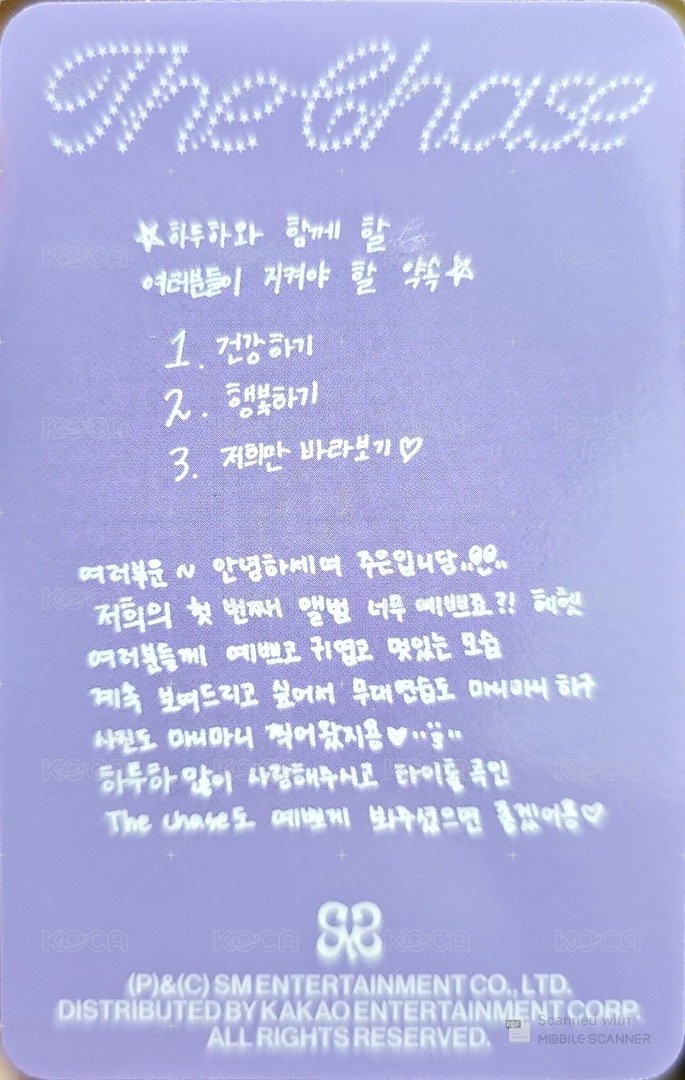 The Chase
☆하투하와 함께 할
여러분들이 지켜야 할 약속☆
1. 건강하기
2. 행복하기
3. 저희만 바라보기♡
여러부운 ~ 안녕하세여 주은입니당..
저희의 첫 번째 앨범 너무 예쁘죠?! 헤헷
여러분들께 예쁘고 귀엽고 멋있는 모습
계속 보여드리고 싶어서 무대 연습도 마니마니 하구
사진도 마니마니 찍어왔지용♥
하투하 많이 사랑해주시고 타이틀 곡인
The chase도 예쁘게 봐주셨으면 좋겠어용♡
(P)&(C) SM ENTERTAINMENT CO., LTD.
DISTRIBUTED BY KAKAO ENTERTAINMENT CORP.
ALL RIGHTS RESERVED.
KOCA
PDF Scanned with
MOBILE SCANNER